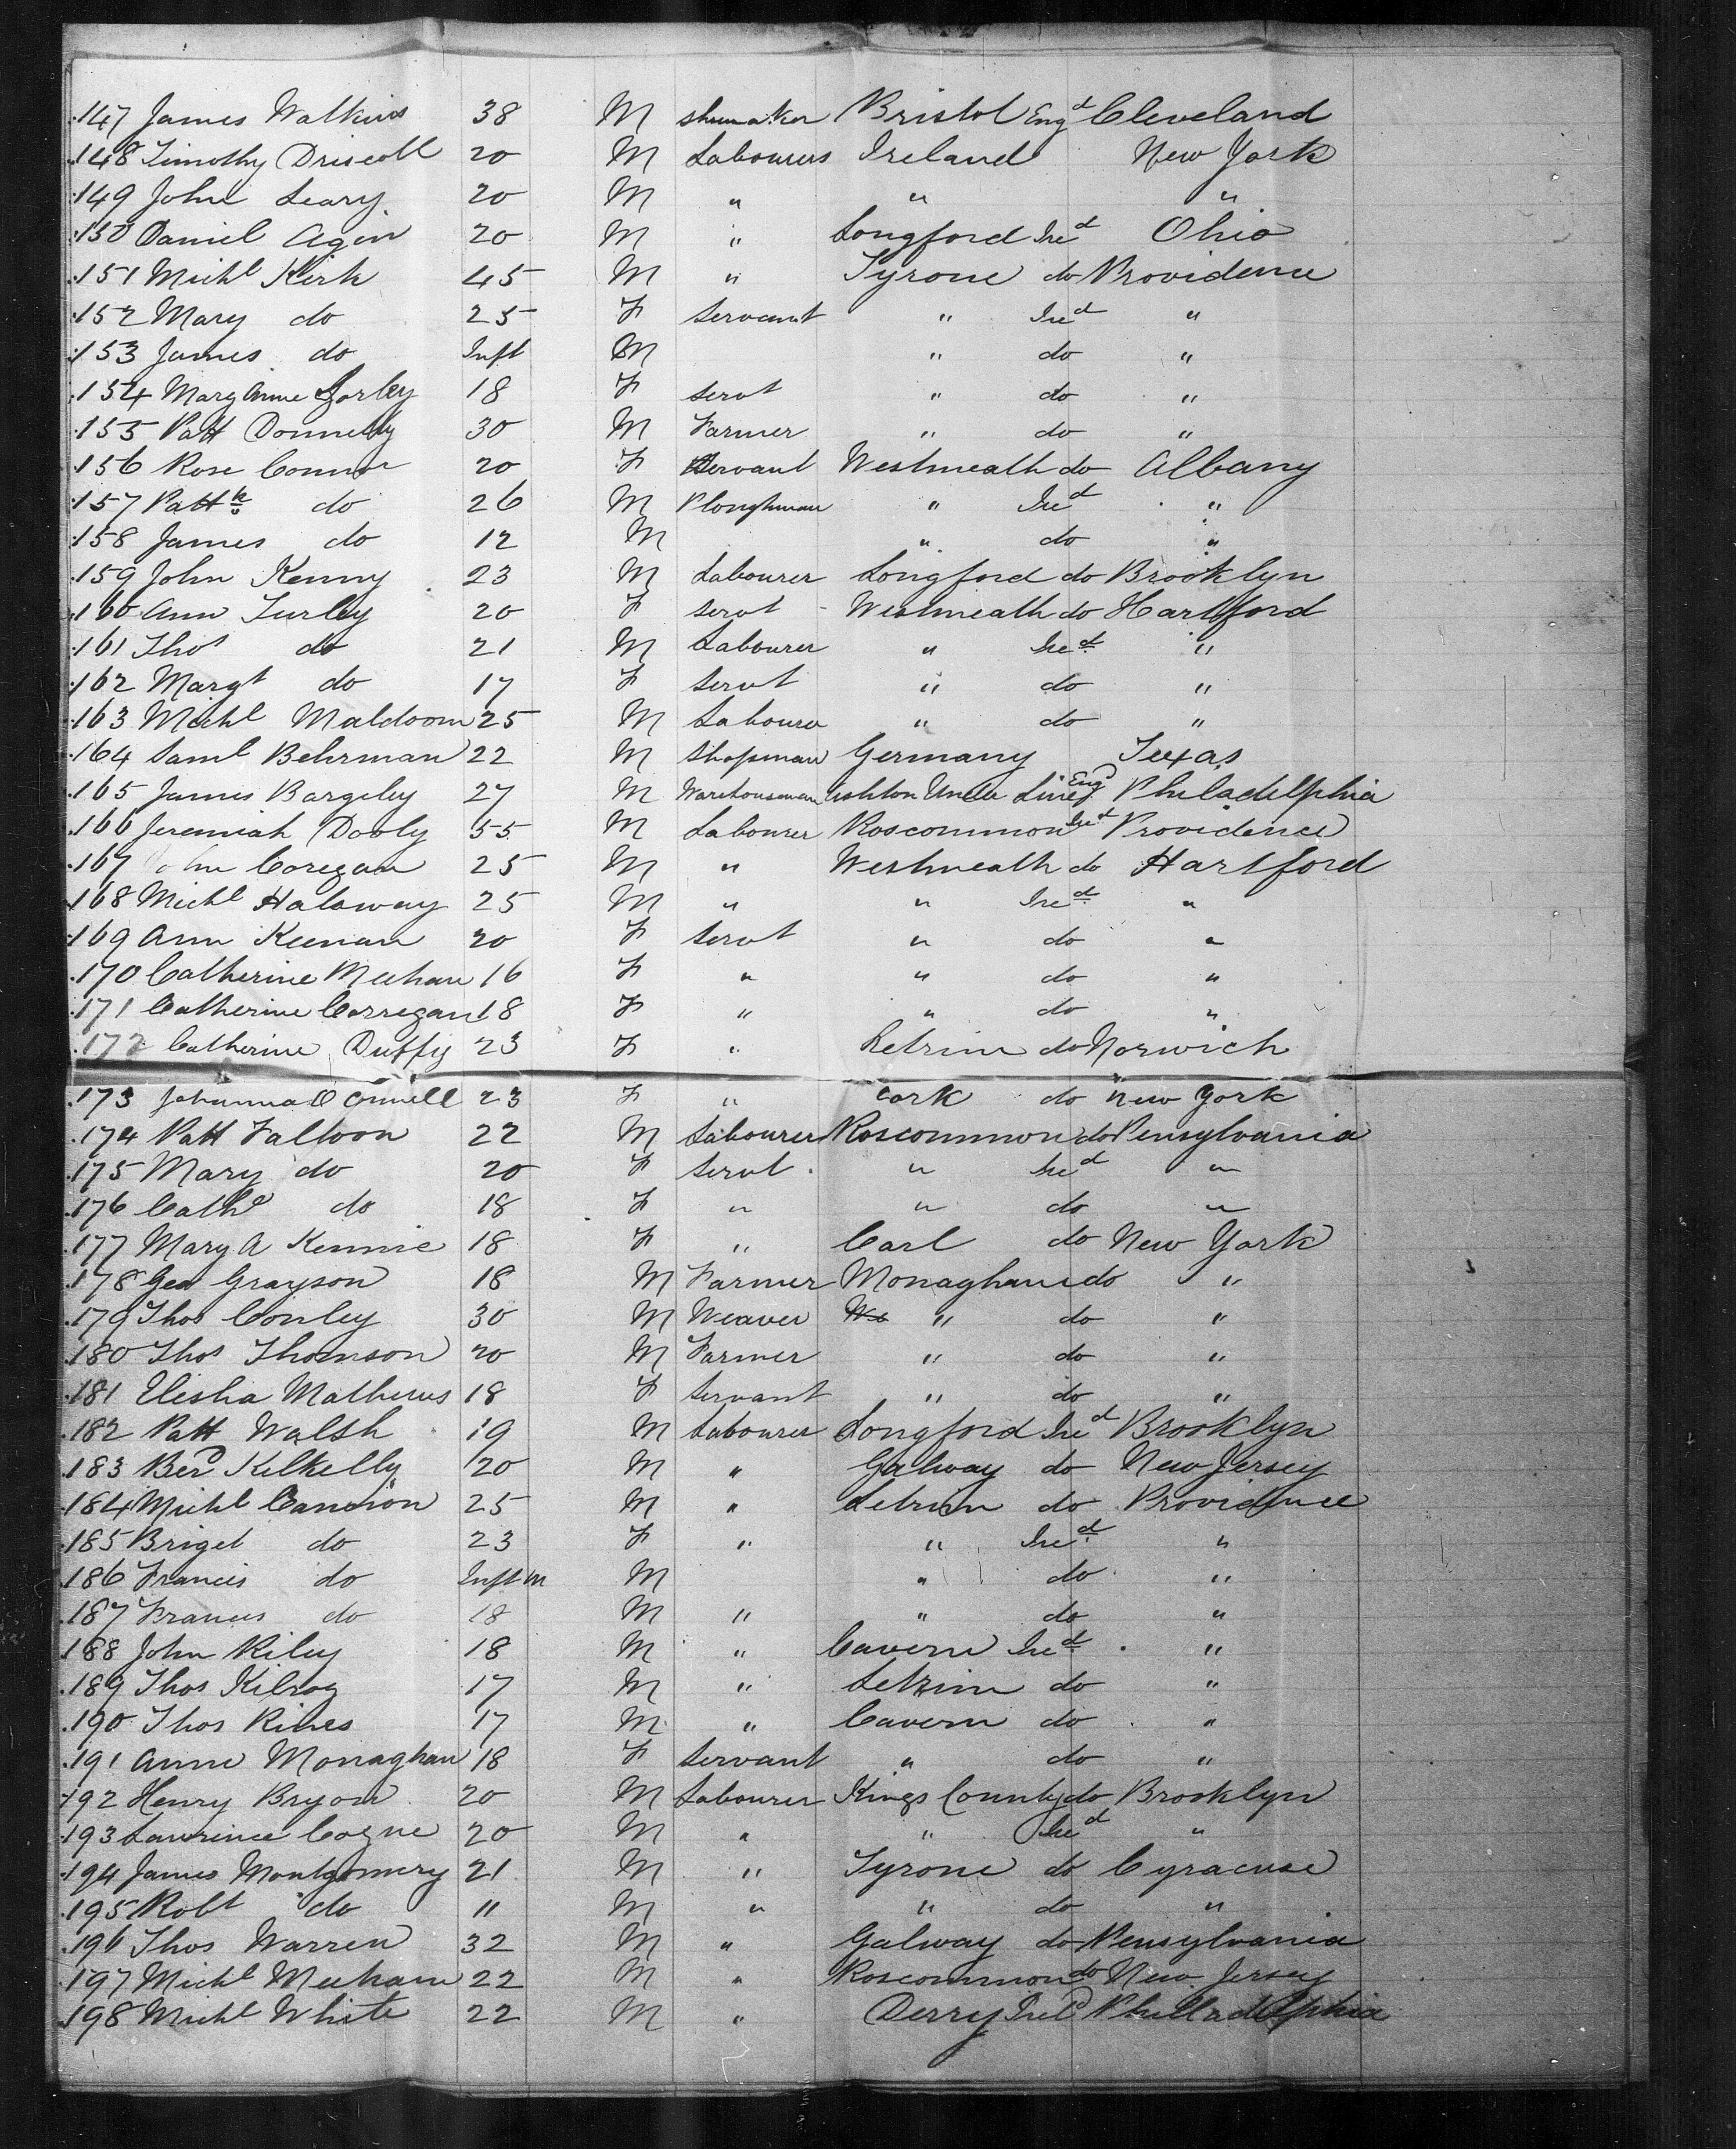 147 James Watkins 38 M shumaker Bristol Engd Cleveland
148 Timothy Driscoll 20 M Labourers Ireland New York
149 John Leary 20 M " " "
150 Daniel Agin 20 M " Longford Ired Ohio
151 Michl Kirk 45 M " Tyrone do Providence
152 Mary do 25 F Servant " Ired "
153 James do Inft M " do "
154 Mary Anne Gorley 18 F Servt " do "
155 Patt Donnelly 30 M Farmer " do "
156 Rose Connor 20 F Servant Westmeath do Albany
157 Pattk do 26 M Ploughman " Ired "
158 James do 12 M " do "
159 John Kenny 23 M Labourer Longford do Brooklyn
160 Ann Turley 20 F servt Westmeath do Hartford
161 Thos do 21 M Labourer " Ired "
162 Margt do 17 F Servt " do "
163 Michl Maldoom 25 M Labourer " do "
164 Saml Behrman 22 M Shopman Germany Texas
165 James Bargeley 27 M Warehouseman Ashton Under Line Eng Philadelphia
166 Jeremiah Dooly 55 M Labourer Roscommon Ired Providence
167 John Coregan 25 M " Westmeath do Hartford
168 Michl Halaway 25 M " " Ired "
169 Ann Keenan 20 F Servt " do "
170 Catherine Meehan 16 F " " do "
171 Catherine Corregan 18 F " " do "
172 Catherine Duffy 23 F " Letrim do Norwich
173 Johanna O Connell 23 F " Cork do New York
174 Patt Falloon 22 M Labourer Roscommon do Pensylvania
175 Mary do 20 F Servt " Ired "
176 Cathe do 18 F " " do "
177 Mary A Kennie 18 F " Carl do New York
178 Geo Grayson 18 M Farmer Monaghan do "
179 Thos Conley 30 M Weaver " do "
180 Thos Thomson 20 M Farmer " do "
181 Elisha Mathews 18 F Servant " do "
182 Patt Walsh 19 M Labourer Longford Ired Brooklyn
183 Berd Kilkelly 20 M " Galway do New Jersey
184 Michl Cancion 25 M " Letrim do Providence
185 Briget do 23 F " " Ired "
186 Francis do Inft m M " do "
187 Francis do 18 M " " do "
188 John Riley 18 M " Cavern Ired "
189 Thos Kilroy 17 M " Letrim do "
190 Thos Rines 17 M " Cavern do "
191 Anne Monaghan 18 F Servant " do "
192 Henry Bryon 20 M Labourer Kings County do Brooklyn
193 Lawrince Cogne 20 M " " Ired "
194 James Montgomery 21 M " Tyrone do Cyracuse
195 Robt do 11 M " " do "
196 Thos Warren 32 M " Galway do Pensylvania
197 Michl Meeham 22 M " Roscommon do New Jersey
198 Michl White 22 M " Derry Ireld Philladelphia